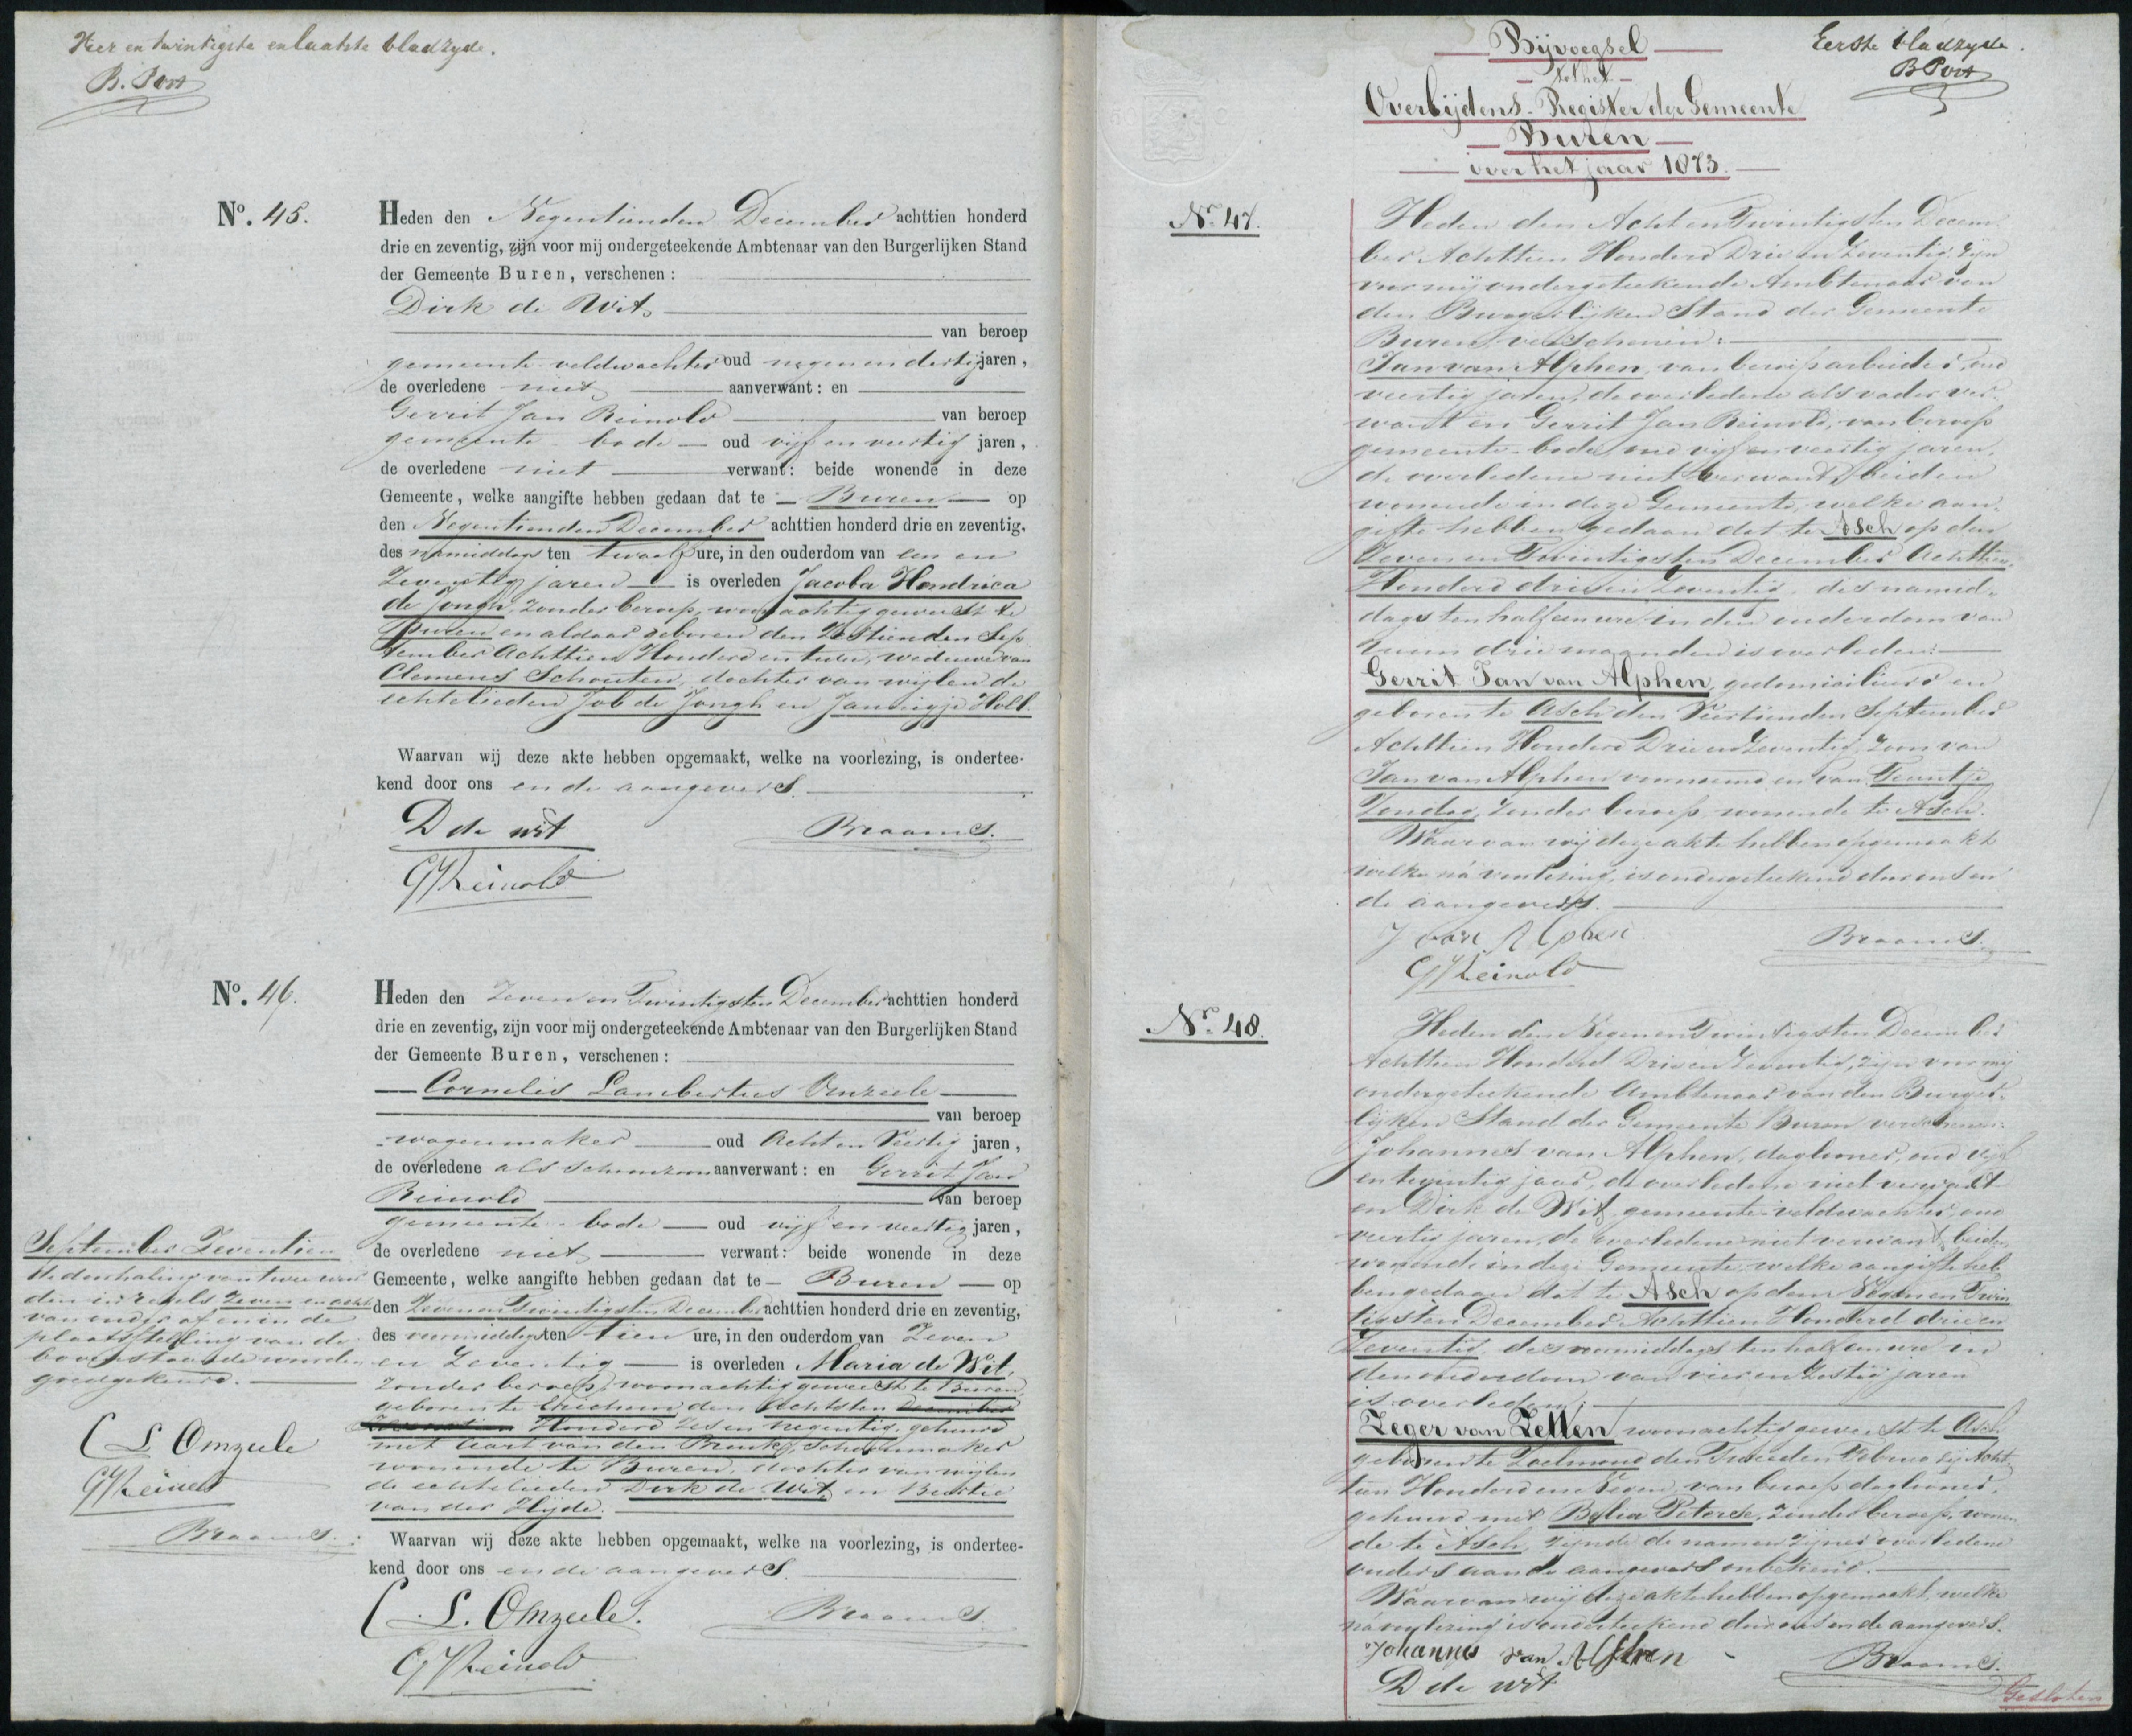 Vier en twintigste en laatste bladzyde.
B. Port
No. 45.
Heden den Negentienden December achttien honderd
drie en zeventig, zijn voor mij ondergeteekende Ambtenaar van den Burgerlijken Stand
der Gemeente Buren, verschenen:
Dirk de Wit
van beroep
gemeente-veldwachter oud negen en dertig jaren,
de overledene niet aanverwant: en
Gerrit Jan Reinold van beroep
gemeente-bode oud vijf en veertig jaren,
de overledene niet verwant: beide wonende in deze
Gemeente, welke aangifte hebben gedaan dat te Buren op
den Negentienden December achttien honderd drie en zeventig,
des namiddags ten twaalf ure, in den ouderdom van een en
Zeventig jaren is overleden Jacoba Hendrica
de Jongh, zonder beroep, woonachtig geweest te
Buren en aldaar geboren den Zestienden Sep
tember Achttien Honderd en twee, weduwe van
Clemens Schouten, dochter van wijlen de
echtelieden Job de Jongh en Jannigje Holl.
Waarvan wij deze akte hebben opgemaakt, welke na voorlezing, is ondertee-
kend door ons en de aangevers.
D de wit Braams.
GJ Reinold
No. 46.
Heden den Zeven en Twintigsten December achttien honderd
drie en zeventig, zijn voor mij ondergeteekende Ambtenaar van den Burgerlijken Stand
der Gemeente Buren, verschenen:
Cornelis Lambertus Omzeele
van beroep
wagenmaker oud Acht en Veertig jaren,
de overledene als schoonzoon aanverwant: en Gerrit Jan
Reinold van beroep
gemeente-bode oud vijf en veertig jaren,
de overledene niet verwant: beide wonende in deze
Gemeente, welke aangifte hebben gedaan dat te Buren op
den Zeven en Twintigsten December achttien honderd drie en zeventig,
des voormiddags ten tien ure, in den ouderdom van Zeven
en Zeventig is overleden Maria de Wit,
zonder beroep, woonachtig geweest te Buren,
geboren te Erichem den Achtsten December
Honderd Zes en negentig, gehuwd
met Aart van den Brink, schoenmaker
wonende te Buren, dochter van wijlen
de echtelieden Dirk de Wit en Beertie
van der Hijde.
Waarvan wij deze akte hebben opgemaakt, welke na voorlezing, is ondertee-
kend door ons en de aangevers.
C. L. Omzeele. Braams.
GJ Reinold
September Zeventien
de doorhaling van twee woor
den in regels zeven en acht
van onder af en in de
plaatsstelling van de
bovenstaande worden
goedgekeurd.
C L Omzeele
GJ Reinold
Braams.
Bijvoegsel
tot het
Overlijdens-Register der Gemeente
Buren
over het jaar 1873.
Eerste bladzyde.
B Port
No. 47.
Heden den Acht en Twintigsten Decem
ber Achttien Honderd Drie en Zeventig, zijn
voor mij ondergeteekende Ambtenaar van
den Burgerlijken Stand der Gemeente
Buren, verschenen:
Jan van Alphen, van beroep arbeider, oud
veertig jaren, de overledene als vader ver-
want en Gerrit Jan Reinold, van beroep
gemeente-bode, oud vijf en veertig jaren,
de overledene niet verwant, beiden
wonende in deze Gemeente, welke aan-
gifte hebben gedaan dat te Asch op den
Zeven en Twintigsten December Achttien
Honderd drie en Zeventig, des namid-
dags ten half een ure in den ouderdom van
ruim drie maanden is overleden:
Gerrit Jan van Alphen, gedomicilieerd en
geboren te Asch den Veertienden September
Achttien Honderd Drie en Zeventig, zoon van
Jan van Alphen voornoemd en van Teuntje
Zondag, zonder beroep, wonende te Asch.
Waarvan wij deze akte hebben opgemaakt
welke ná voorlezing, is ondergeteekend door ons en
de aangevers.
J van Alphen Braams.
GJ Reinold
No. 48.
Heden den Negen en Twintigsten December
Achttien Honderd Drie en Zeventig, zijn voor mij
ondergeteekende Ambtenaar van den Burger-
lijken Stand der Gemeente Buren verschenen:
Johannes van Alphen, daglooner, oud vijf
en twintig jaar, de overledene niet verwant
en Dirk de Wit, gemeente-veldwachter, oud
veertig jaren, de overledene niet verwant, beiden
wonende in deze Gemeente, welke aangifte heb
ben gedaan dat te Asch op den Negen en Twin
tigsten December Achttien Honderd drie en
Zeventig, des voormiddags ten half een ure in
den ouderdom van vier en Zestig jaren
is overleden:
Zeger van Zetten woonachtig geweest te Asch
geboren te Zoelmond den Tweeden Februarij Acht-
tien Honderd en Negen, van beroep daglooner,
gehuwd met Bolia Peterse, zonder beroep, wonen
de te Asch, zijnde de namen zijner overledene
ouders aan de aangevers onbekend.
Waarvan wij deze akte hebben opgemaakt, welke
ná voorlezing is onderteekend door ons en de aangevers.
Johannes van Alphen Braams.
D de wit
Gesloten